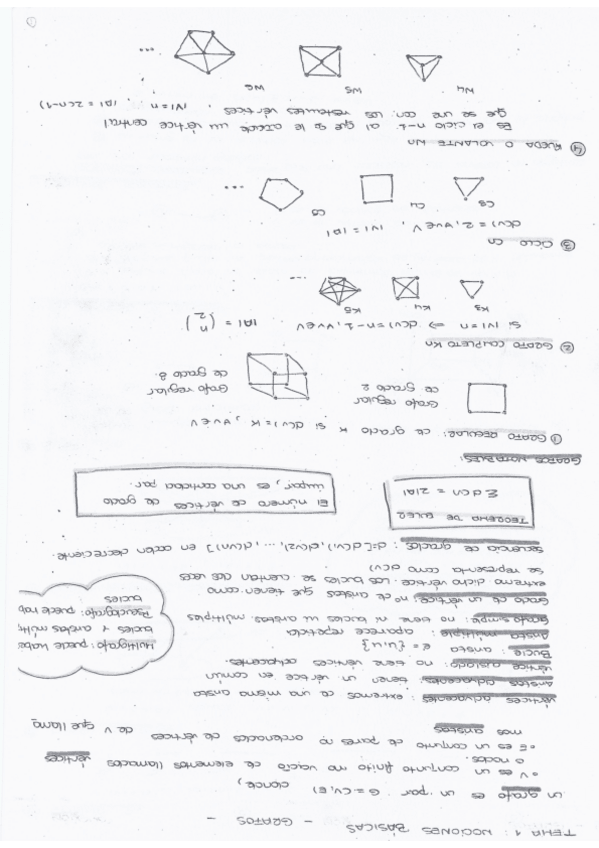 TEMA 1: NOCIONES BÁSICAS - GRAFOS -
Un grafo es un par G=(V,E) donde,
• V es un conjunto finito no vacío de elementos llamados vértices
o nodos.
• E es un conjunto de pares no ordenados de vértices de V que llama
mos aristas
Vértices adyacentes: extremos de una misma arista
Aristas adyacentes: tienen un vértice en común
Vértice aislado: no tiene vértices adyacentes.
Bucle: arista e={u,u}
Arista múltiple: aparece repetida
Grafo simple: no tiene ni bucles ni aristas múltiples
Multigrafo: puede habe
bucles y aristas múlti
Pseudografo: puede hab
bucles
Grado de un vértice: nº de aristas que tienen como
extremo dicho vértice. Los bucles se cuentan dos veces
se representa como d(v)
Secuencia de grados: d=[d(v1), d(v2), ..., d(vn)] en orden decreciente.
TEOREMA DE EULER
Σ d(v) = 2|A|
El número de vértices de grado
impar, es una cantidad par.
GRAFOS NOTABLES:
① GRAFO REGULAR: de grado K si d(v)=K, ∀v∈V
Grafo regular
de grado 2
Grafo regular
de grado 3.
② GRAFO COMPLETO Kn
Si |V|=n ⇒ d(v)=n-1, ∀v∈V |A| = (n 2)
K3 K4 K5 ...
③ CICLO Cn
d(v)=2, ∀v∈V, |V|=|A|
C3 C4 C5 ...
④ RUEDA O VOLANTE Wn
Es el ciclo n-1 al que se le añade un vértice central
que se une con los restantes vértices, |V|=n, |A|=2(n-1)
W4 W5 W6 ...
①